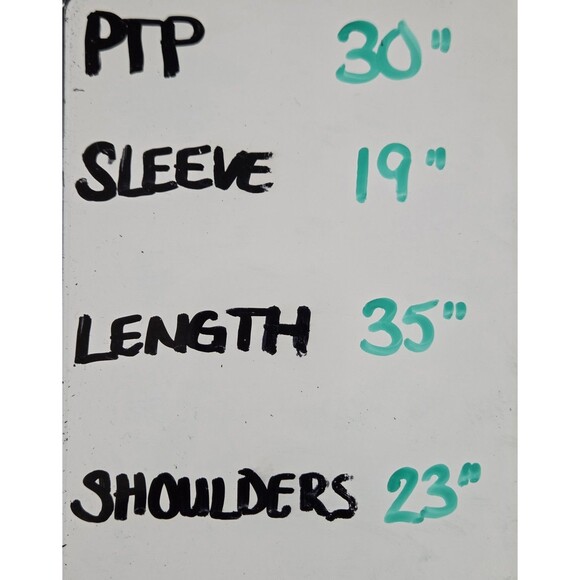 PTP 30"
SLEEVE 19"
LENGTH 35"
SHOULDERS 23"